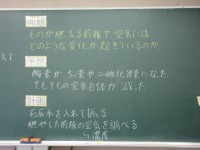 問題
ものが燃える前後で空気には
どのような変化が起きているのか
予想
酸素が
二酸化炭素になった
計画
石灰水を入れて振る
燃やした前後の空気を調べる
濃度